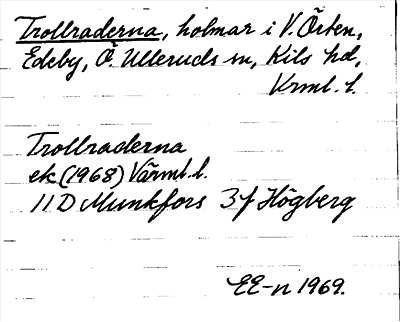 Trollraderna, holmar i V. Örten,
Edeby, Ö. Ulleruds sn, Kils hd,
Vrml. l.
Trollraderna
ek (1968) Värml. l.
11 D Munkfors 3f Högberg
EE-n 1969.